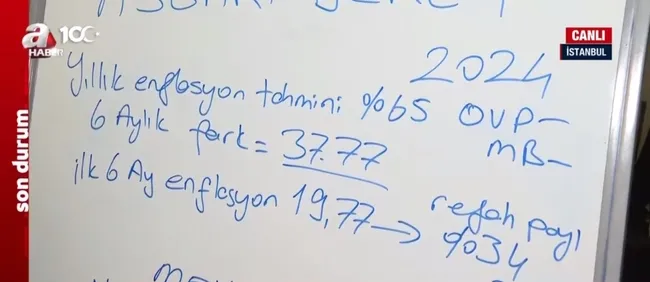 a 100+
HABER
CANLI
İSTANBUL
son durum
2024
Yıllık enflasyon tahmini %65 OVP-
MB-
6 Aylık fark = 37.77
ilk 6 Ay enflasyon 19,77 → refah payı
%34